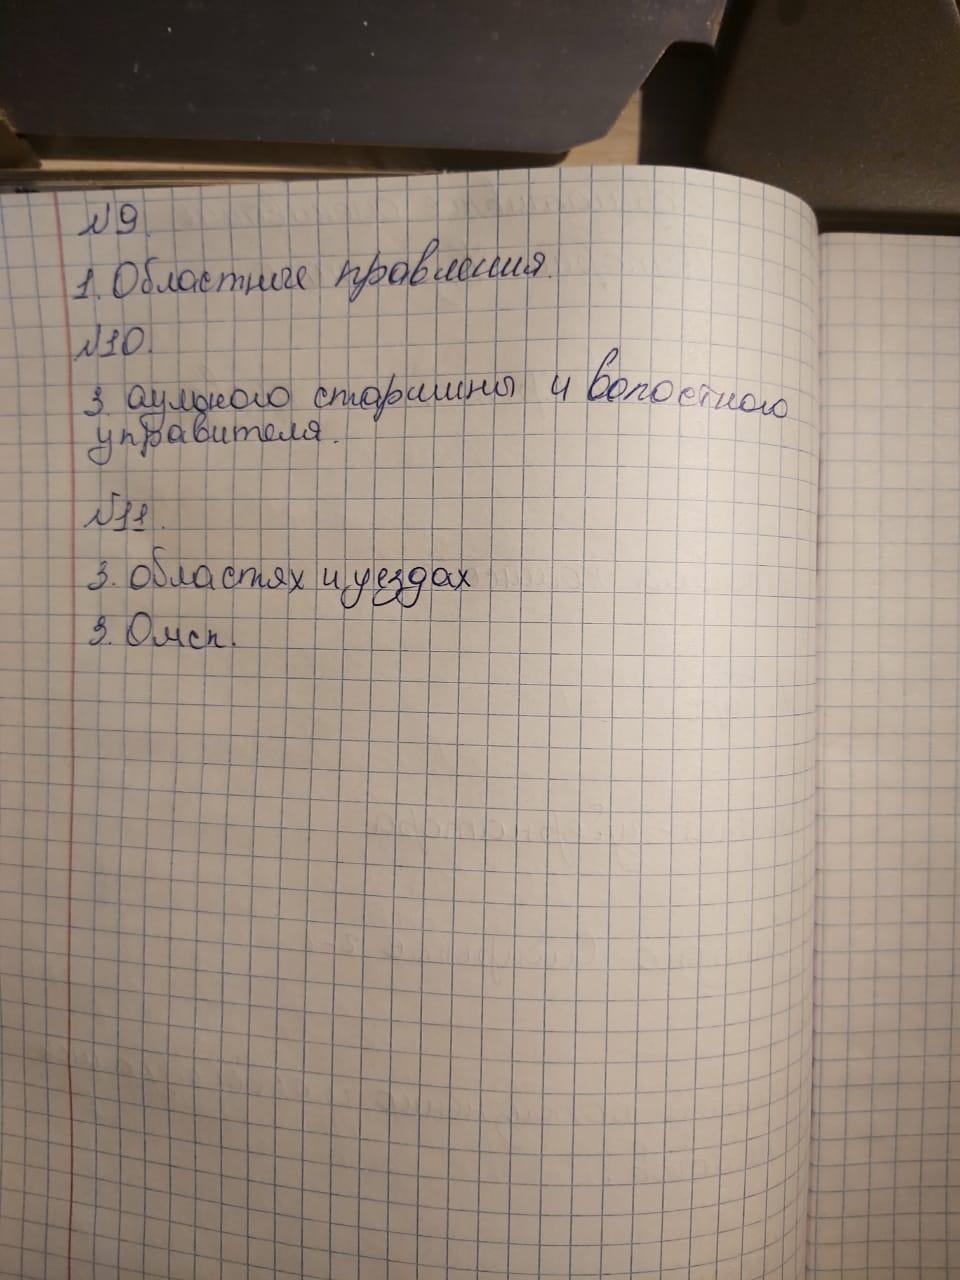 №9.
1. Областные правления.
№10.
3. аульного старшины и волостного
управителя.
№11.
3. областях и уездах
3. Омск.